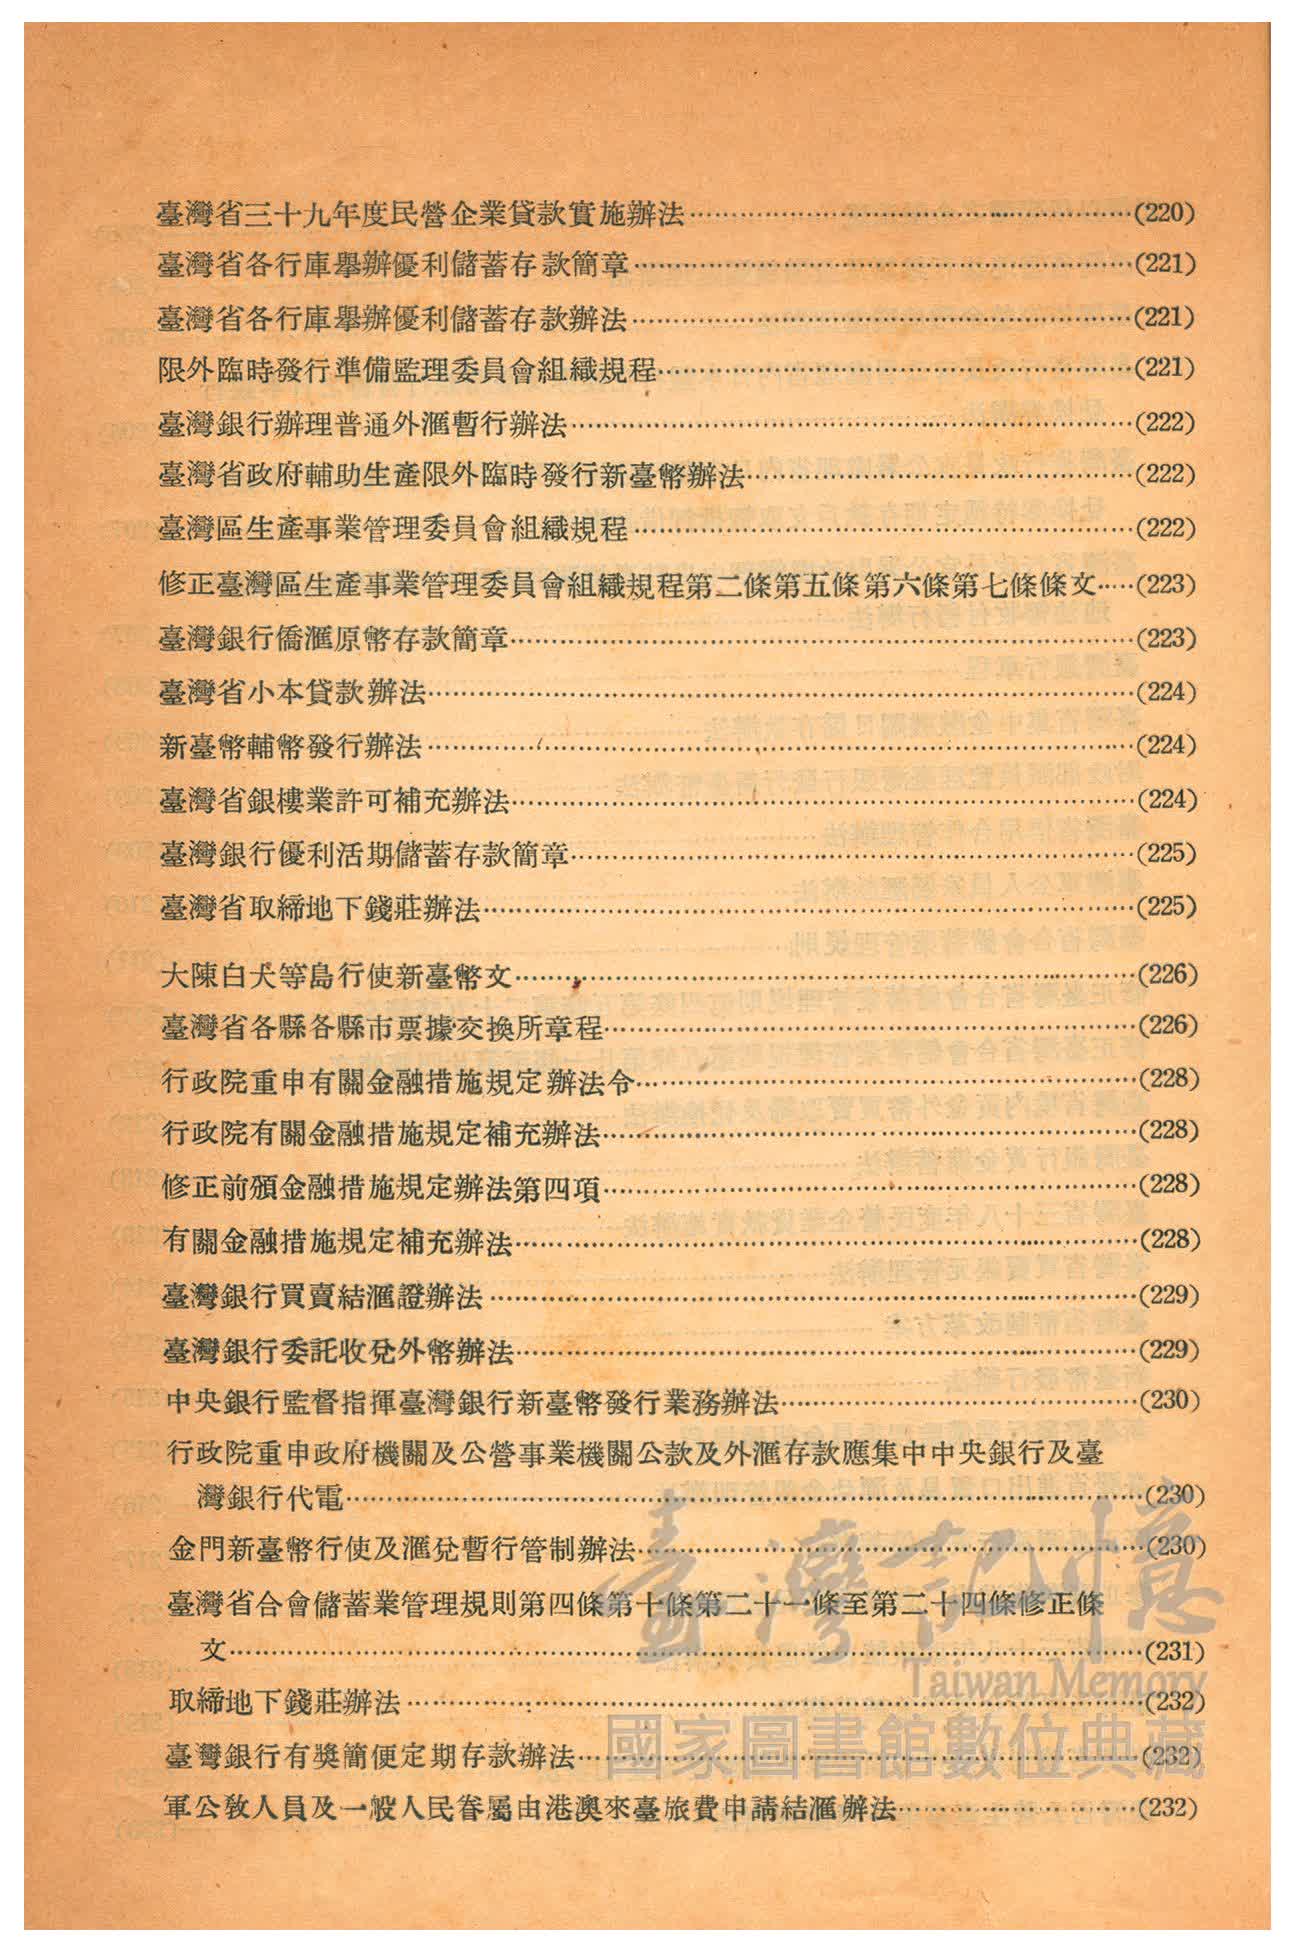 臺灣省三十九年度民營企業貸款實施辦法……(220)
臺灣省各行庫舉辦優利儲蓄存款簡章……(221)
臺灣省各行庫舉辦優利儲蓄存款辦法……(221)
限外臨時發行準備監理委員會組織規程……(221)
臺灣銀行辦理普通外滙暫行辦法……(222)
臺灣省政府輔助生產限外臨時發行新臺幣辦法……(222)
臺灣區生產事業管理委員會組織規程……(222)
修正臺灣區生產事業管理委員會組織規程第二條第五條第六條第七條條文……(223)
臺灣銀行僑滙原幣存款簡章……(223)
臺灣省小本貸款辦法……(224)
新臺幣輔幣發行辦法……(224)
臺灣省銀樓業許可補充辦法……(224)
臺灣銀行優利活期儲蓄存款簡章……(225)
臺灣省取締地下錢莊辦法……(225)
大陳白犬等島行使新臺幣文……(226)
臺灣省各縣各縣市票據交換所章程……(226)
行政院重申有關金融措施規定辦法令……(228)
行政院有關金融措施規定補充辦法……(228)
修正前頒金融措施規定辦法第四項……(228)
有關金融措施規定補充辦法……(228)
臺灣銀行買賣結滙證辦法……(229)
臺灣銀行委託收兌外幣辦法……(229)
中央銀行監督指揮臺灣銀行新臺幣發行業務辦法……(230)
行政院重申政府機關及公營事業機關公款及外滙存款應集中中央銀行及臺
灣銀行代電……(230)
金門新臺幣行使及滙兌暫行管制辦法……(230)
臺灣省合會儲蓄業管理規則第四條第十條第二十一條至第二十四條修正條
文……(231)
取締地下錢莊辦法……(232)
臺灣銀行有獎簡便定期存款辦法……(232)
軍公教人員及一般人民眷屬由港澳來臺旅費申請結滙辦法……(232)
臺灣記憶
Taiwan Memory
國家圖書館數位典藏